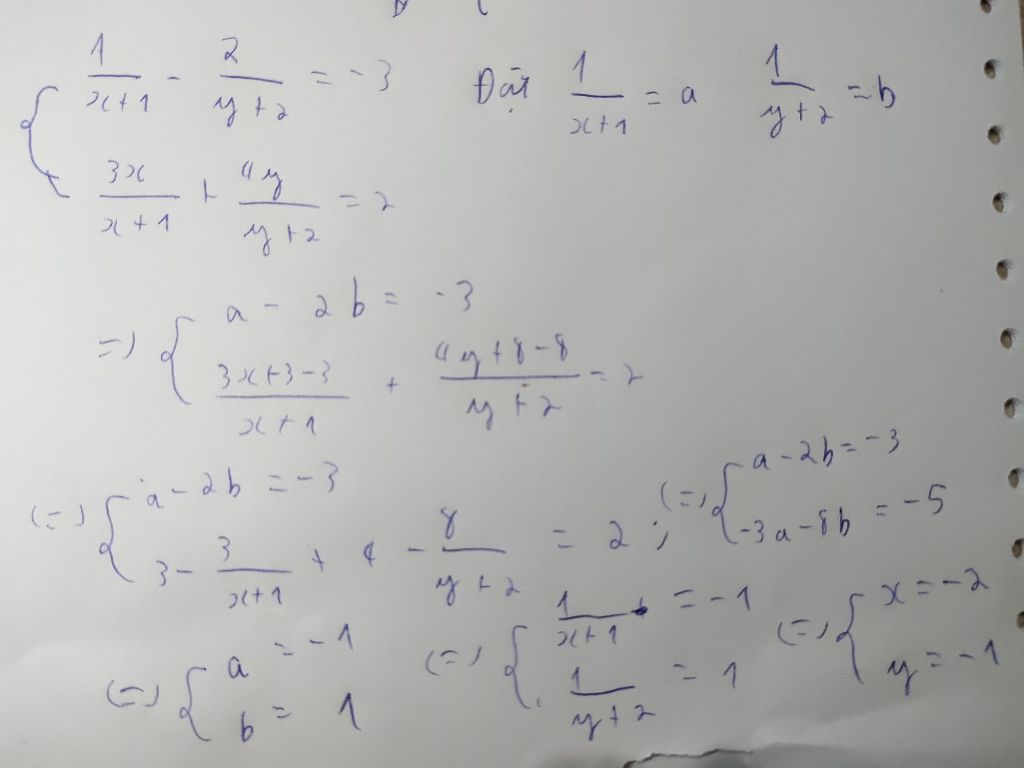 { 1/(x+1) - 2/(y+2) = -3 Đặt 1/(x+1) = a 1/(y+2) = b
3x/(x+1) + 4y/(y+2) = 2
=> { a - 2b = -3
(3x+3-3)/(x+1) + (4y+8-8)/(y+2) = 2
(=) { a - 2b = -3
3 - 3/(x+1) + 4 - 8/(y+2) = 2 ; (=) { a - 2b = -3
-3a - 8b = -5
(=) { a = -1
b = 1
(=) { 1/(x+1) = -1
1/(y+2) = 1
(=) { x = -2
y = -1